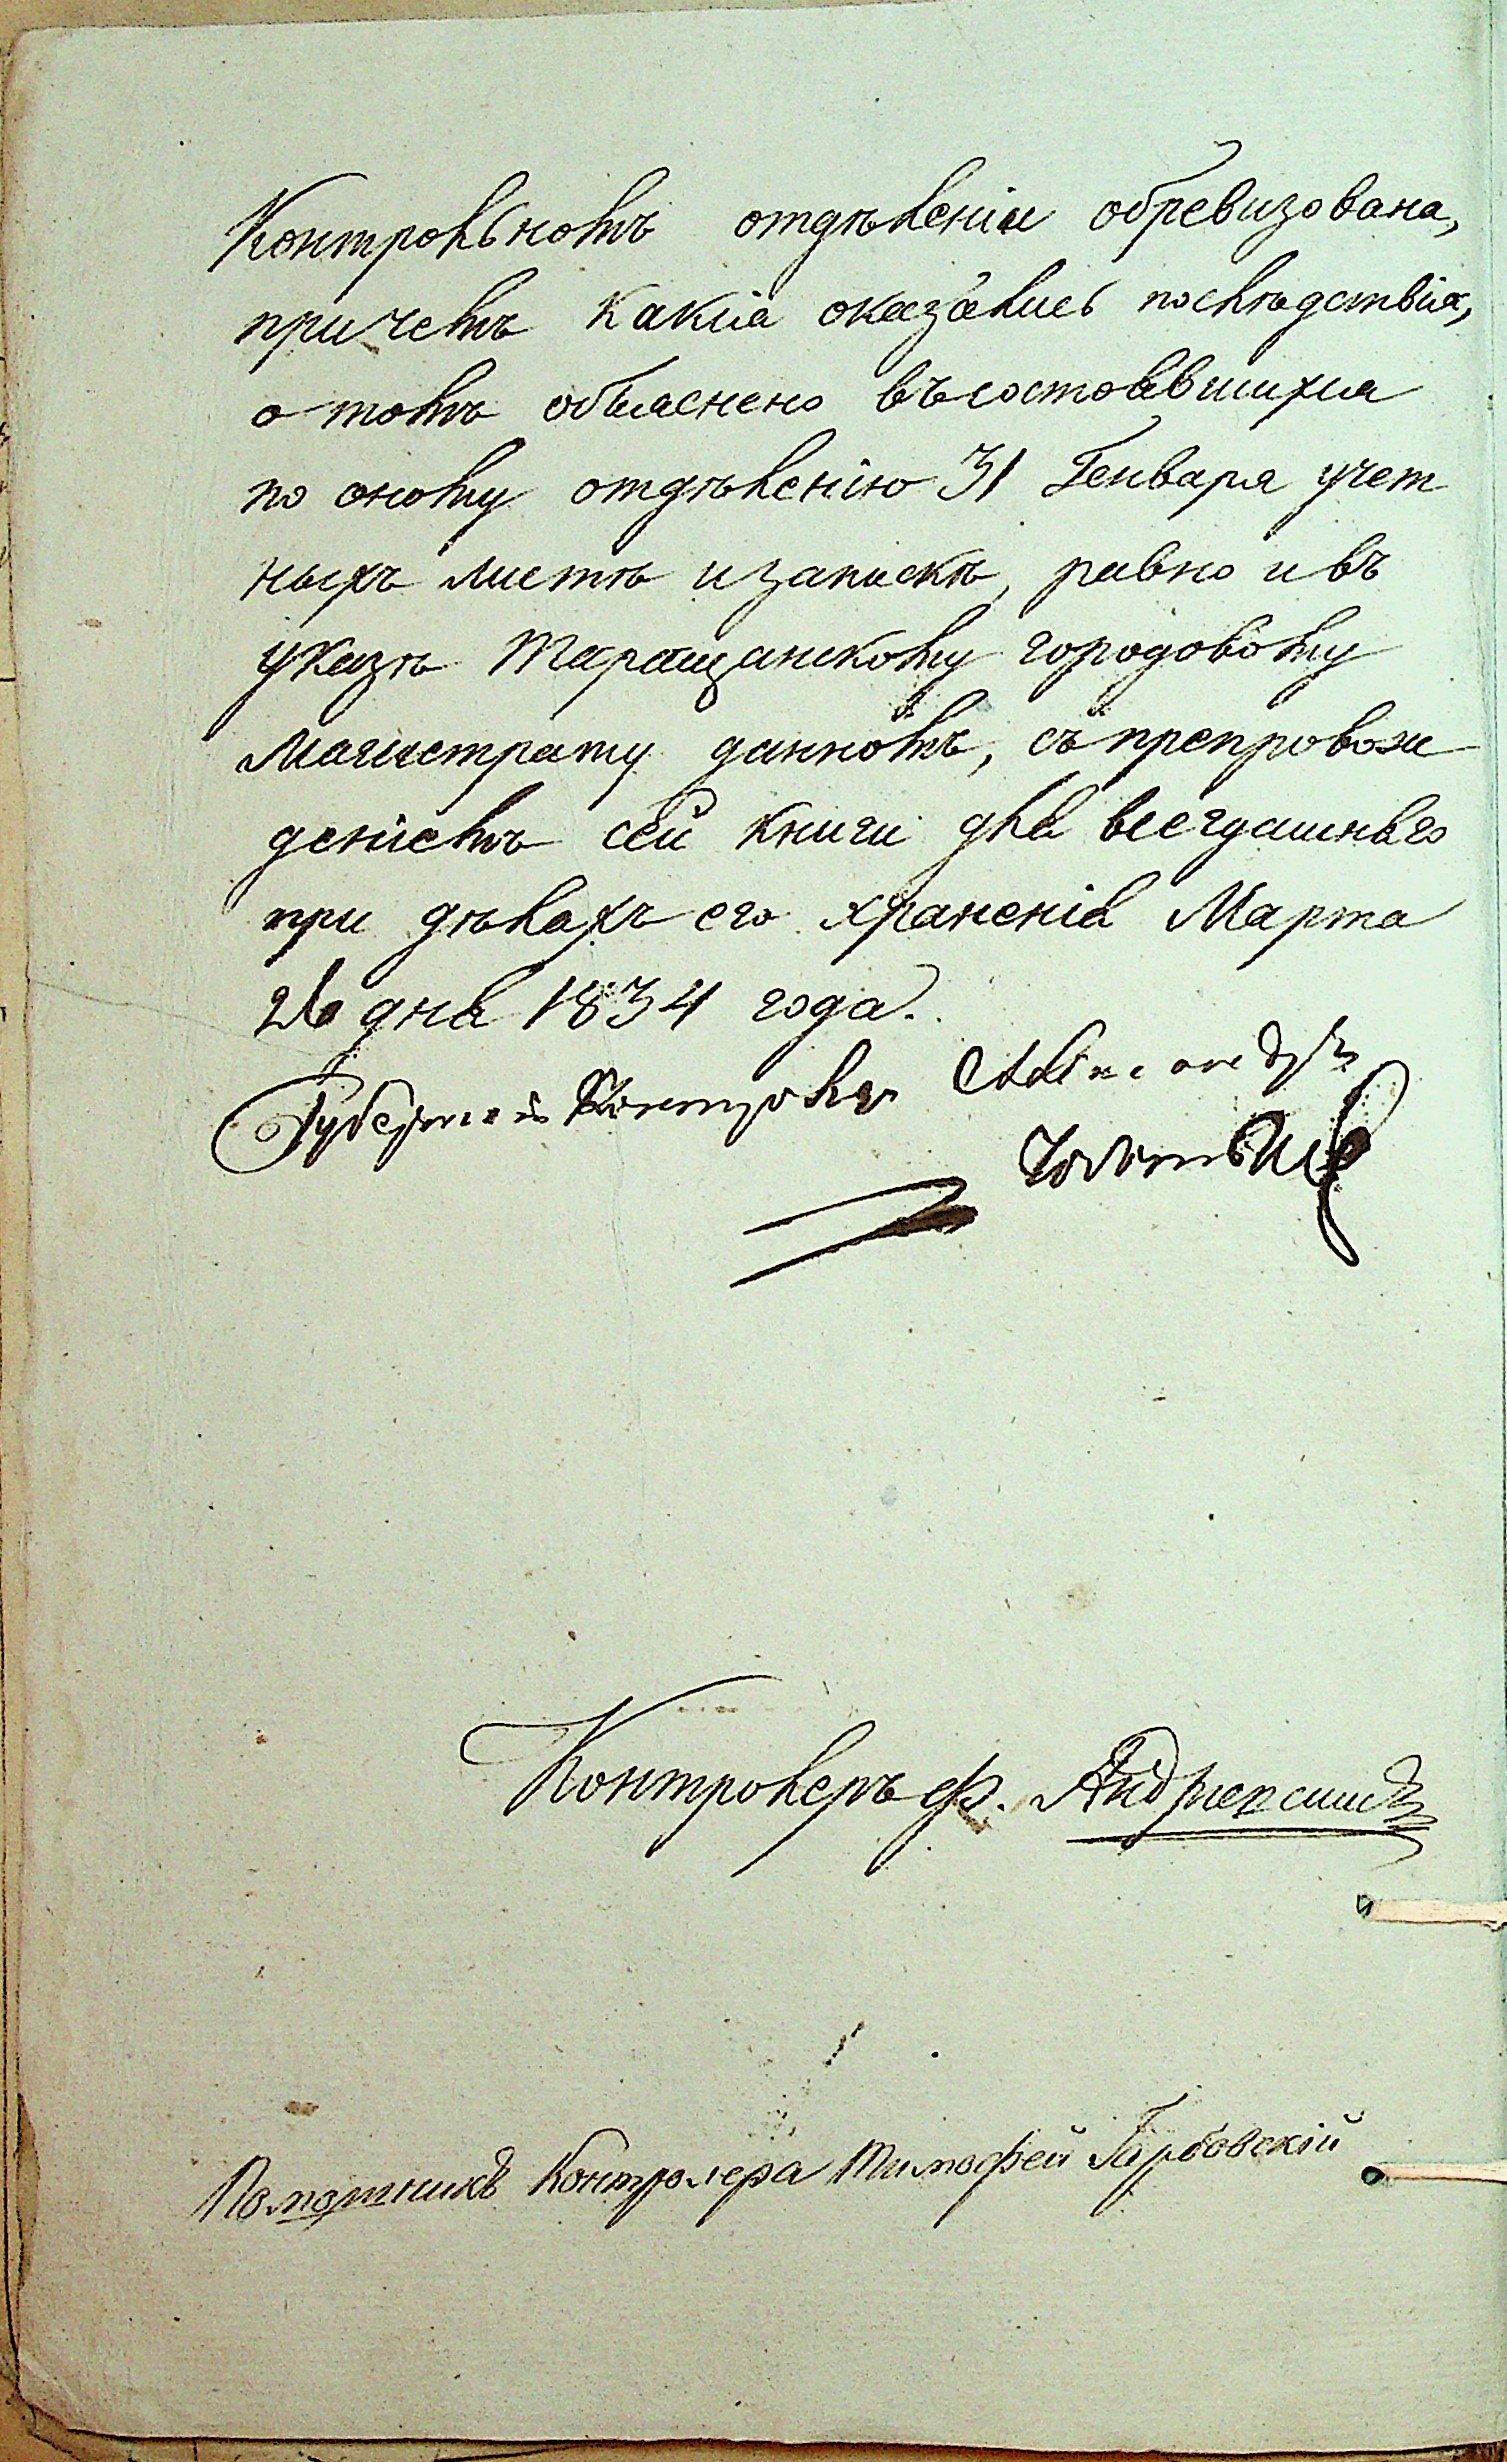 Контрольномъ отдѣленіи обревизована,
при чемъ какія оказались послѣдствія,
о томъ объяснено въ состоявшихся
по оному отдѣленію 31 Генваря учет
ныхъ листѣ и запискѣ, равно и въ
указѣ Таращанскому городовому
Магистрату данномъ, съ препровож
деніемъ сей книги для всегдашняго
при дѣлахъ его храненія Марта
26 дня 1834 года.
Губернскій Контролеръ
Контролеръ ф.
Помощникъ Контролера Тимофей Гарбовскій